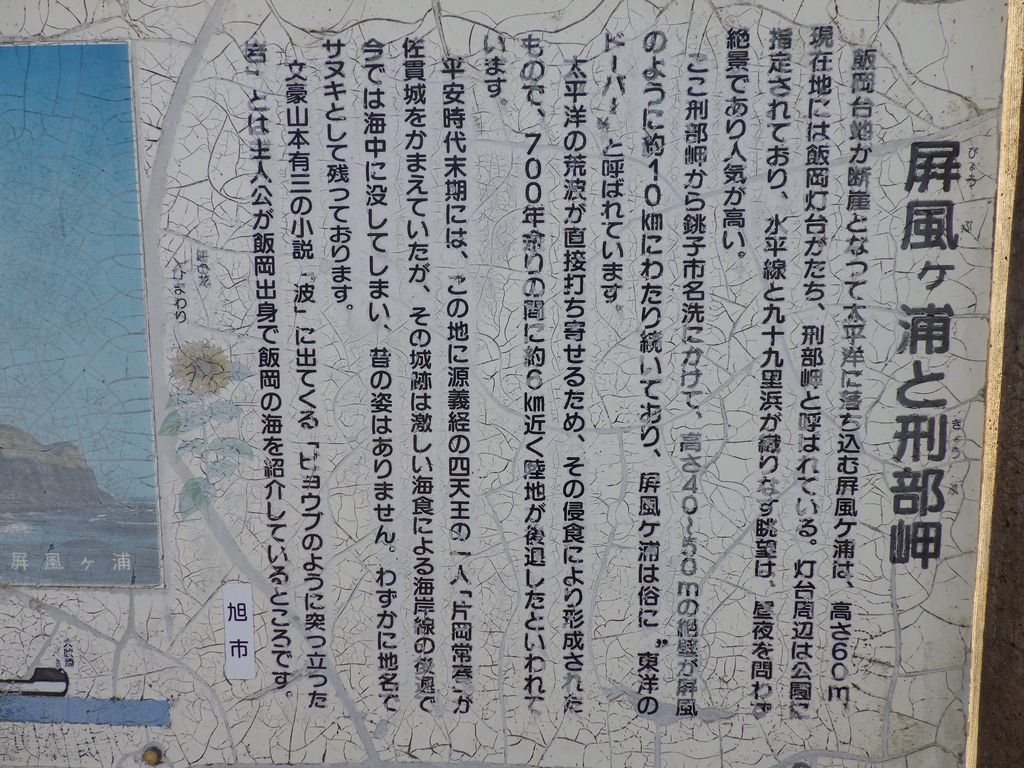 屏風ヶ浦と刑部岬
びょう ぶ
きょう ぶ
飯岡台地が断崖となって太平洋に落ち込む屏風ケ浦は、高さ60m、
現在地には飯岡灯台がたち、刑部岬と呼ばれている。灯台周辺は公園に
指定されており、水平線と九十九里浜が織りなす眺望は、昼夜を問わず
絶景であり人気が高い。
ここ刑部岬から銚子市名洗にかけて、高さ40〜50mの絶壁が屏風
のように約10kmにわたり続いており、屏風ケ浦は俗に〝東洋の
ドーバー〟と呼ばれています。
太平洋の荒波が直接打ち寄せるため、その侵食により形成された
もので、700年余りの間に約6km近く陸地が後退したといわれて
います。
平安時代末期には、この地に源義経の四天王の一人「片岡常春」が
佐貫城をかまえていたが、その城跡は激しい海食による海岸線の後退で
今では海中に没してしまい、昔の姿はありません。わずかに地名で
サヌキとして残っております。
文豪山本有三の小説「波」に出てくる「ビョウブのように突つ立った
岩」とは主人公が飯岡出身で飯岡の海を紹介しているところです。
ひまわり
旭市
屏風ヶ浦